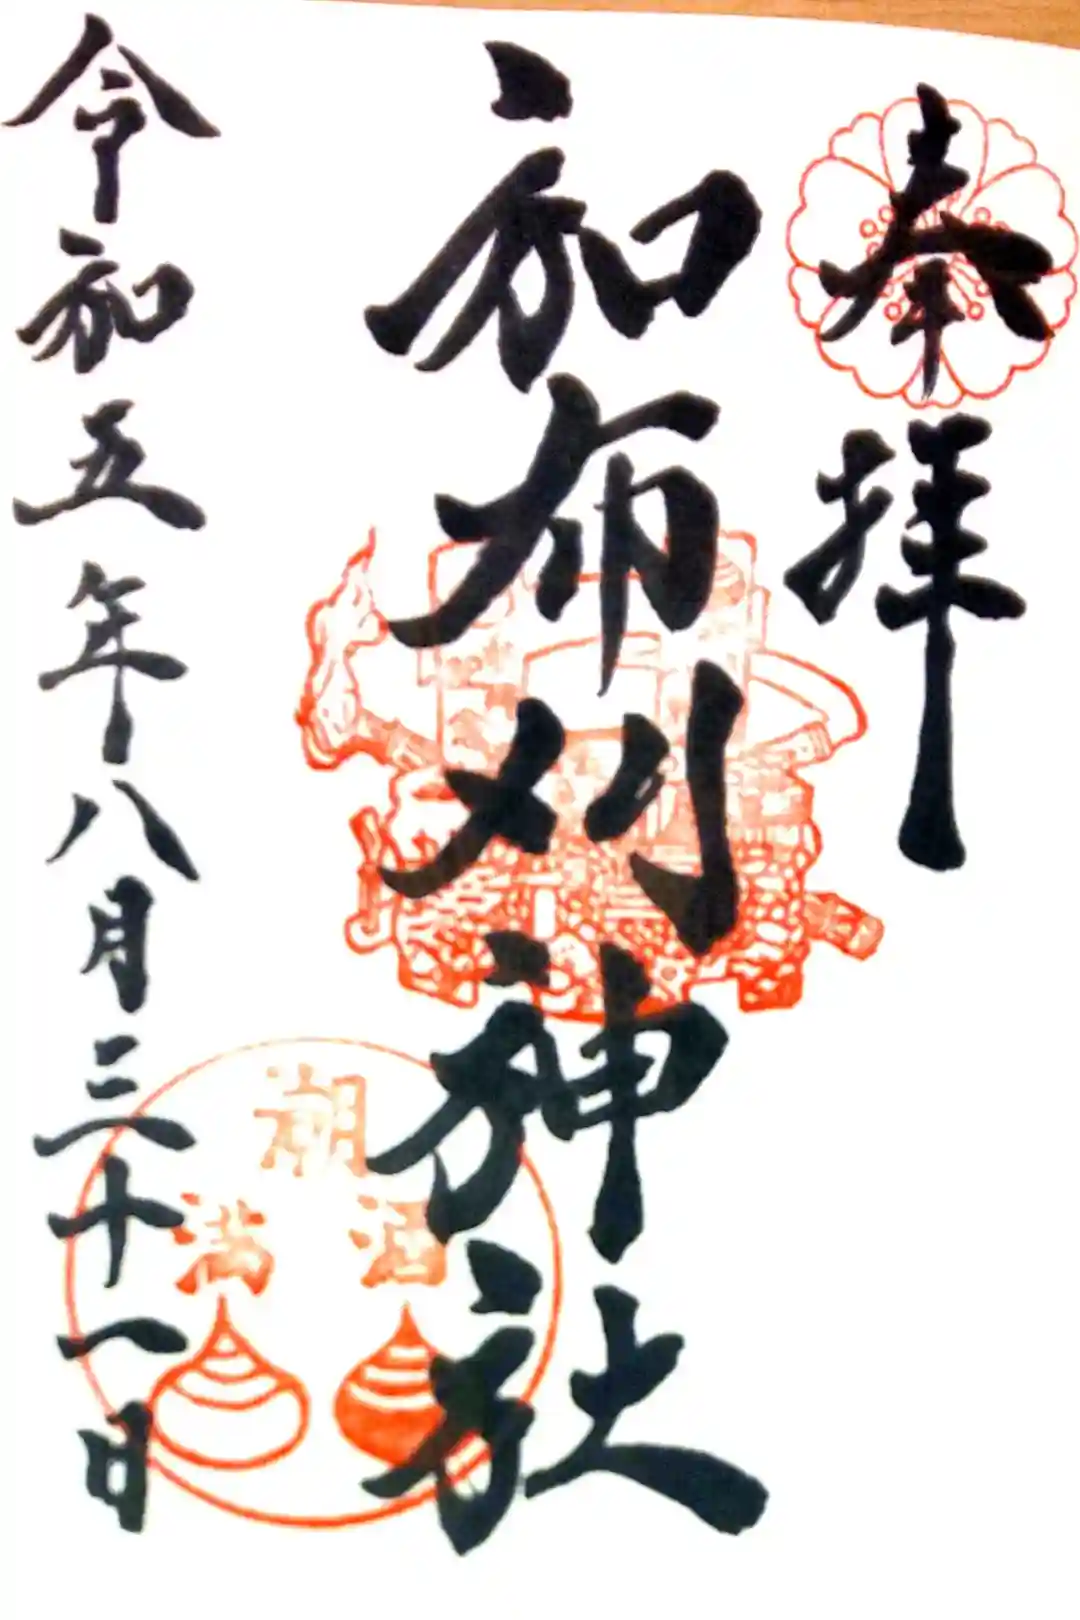 奉拝
和布刈神社
令和五年八月三十一日
潮
満 涸